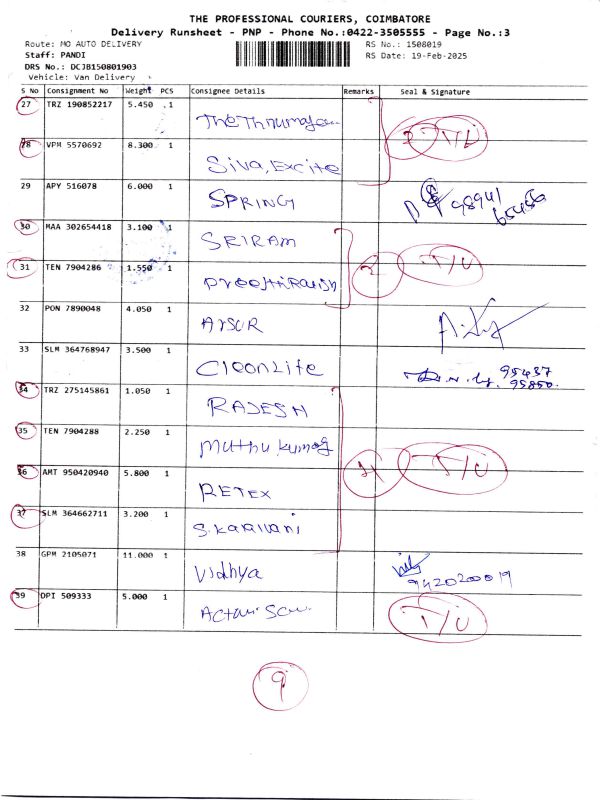 THE PROFESSIONAL COURIERS, COIMBATORE
Delivery Runsheet - PNP - Phone No.:0422-3505555 - Page No.:3
Route: MO AUTO DELIVERY RS No.: 1508019
Staff: PANDI RS Date: 19-Feb-2025
DRS No.: DCJB150801903
Vehicle: Van Delivery
S No Consignment No Weight PCS Consignee Details Remarks Seal & Signature
27 TRZ 190852217 5.450 1
28 VPM 5570692 8.300 1 Siva, Excite 2 T/U
29 APY 516078 6.000 1 SPRING 98941
30 MAA 302654418 3.100 1 SRIRAM
31 TEN 7904286 1.550 1 2 T/U
32 PON 7890048 4.050 1 ArSUR
33 SLM 364768947 3.500 1 CleanLite 95437
95850
34 TRZ 275145861 1.050 1 RAJESH
35 TEN 7904288 2.250 1 Muthu kumar
36 AMT 950420940 5.800 1 RETEX 4 T/U
37 SLM 364662711 3.200 1 S.Karaivani
38 GPM 2105071 11.000 1 Vidhya 9420200019
39 DPI 509333 5.000 1 T/U
9